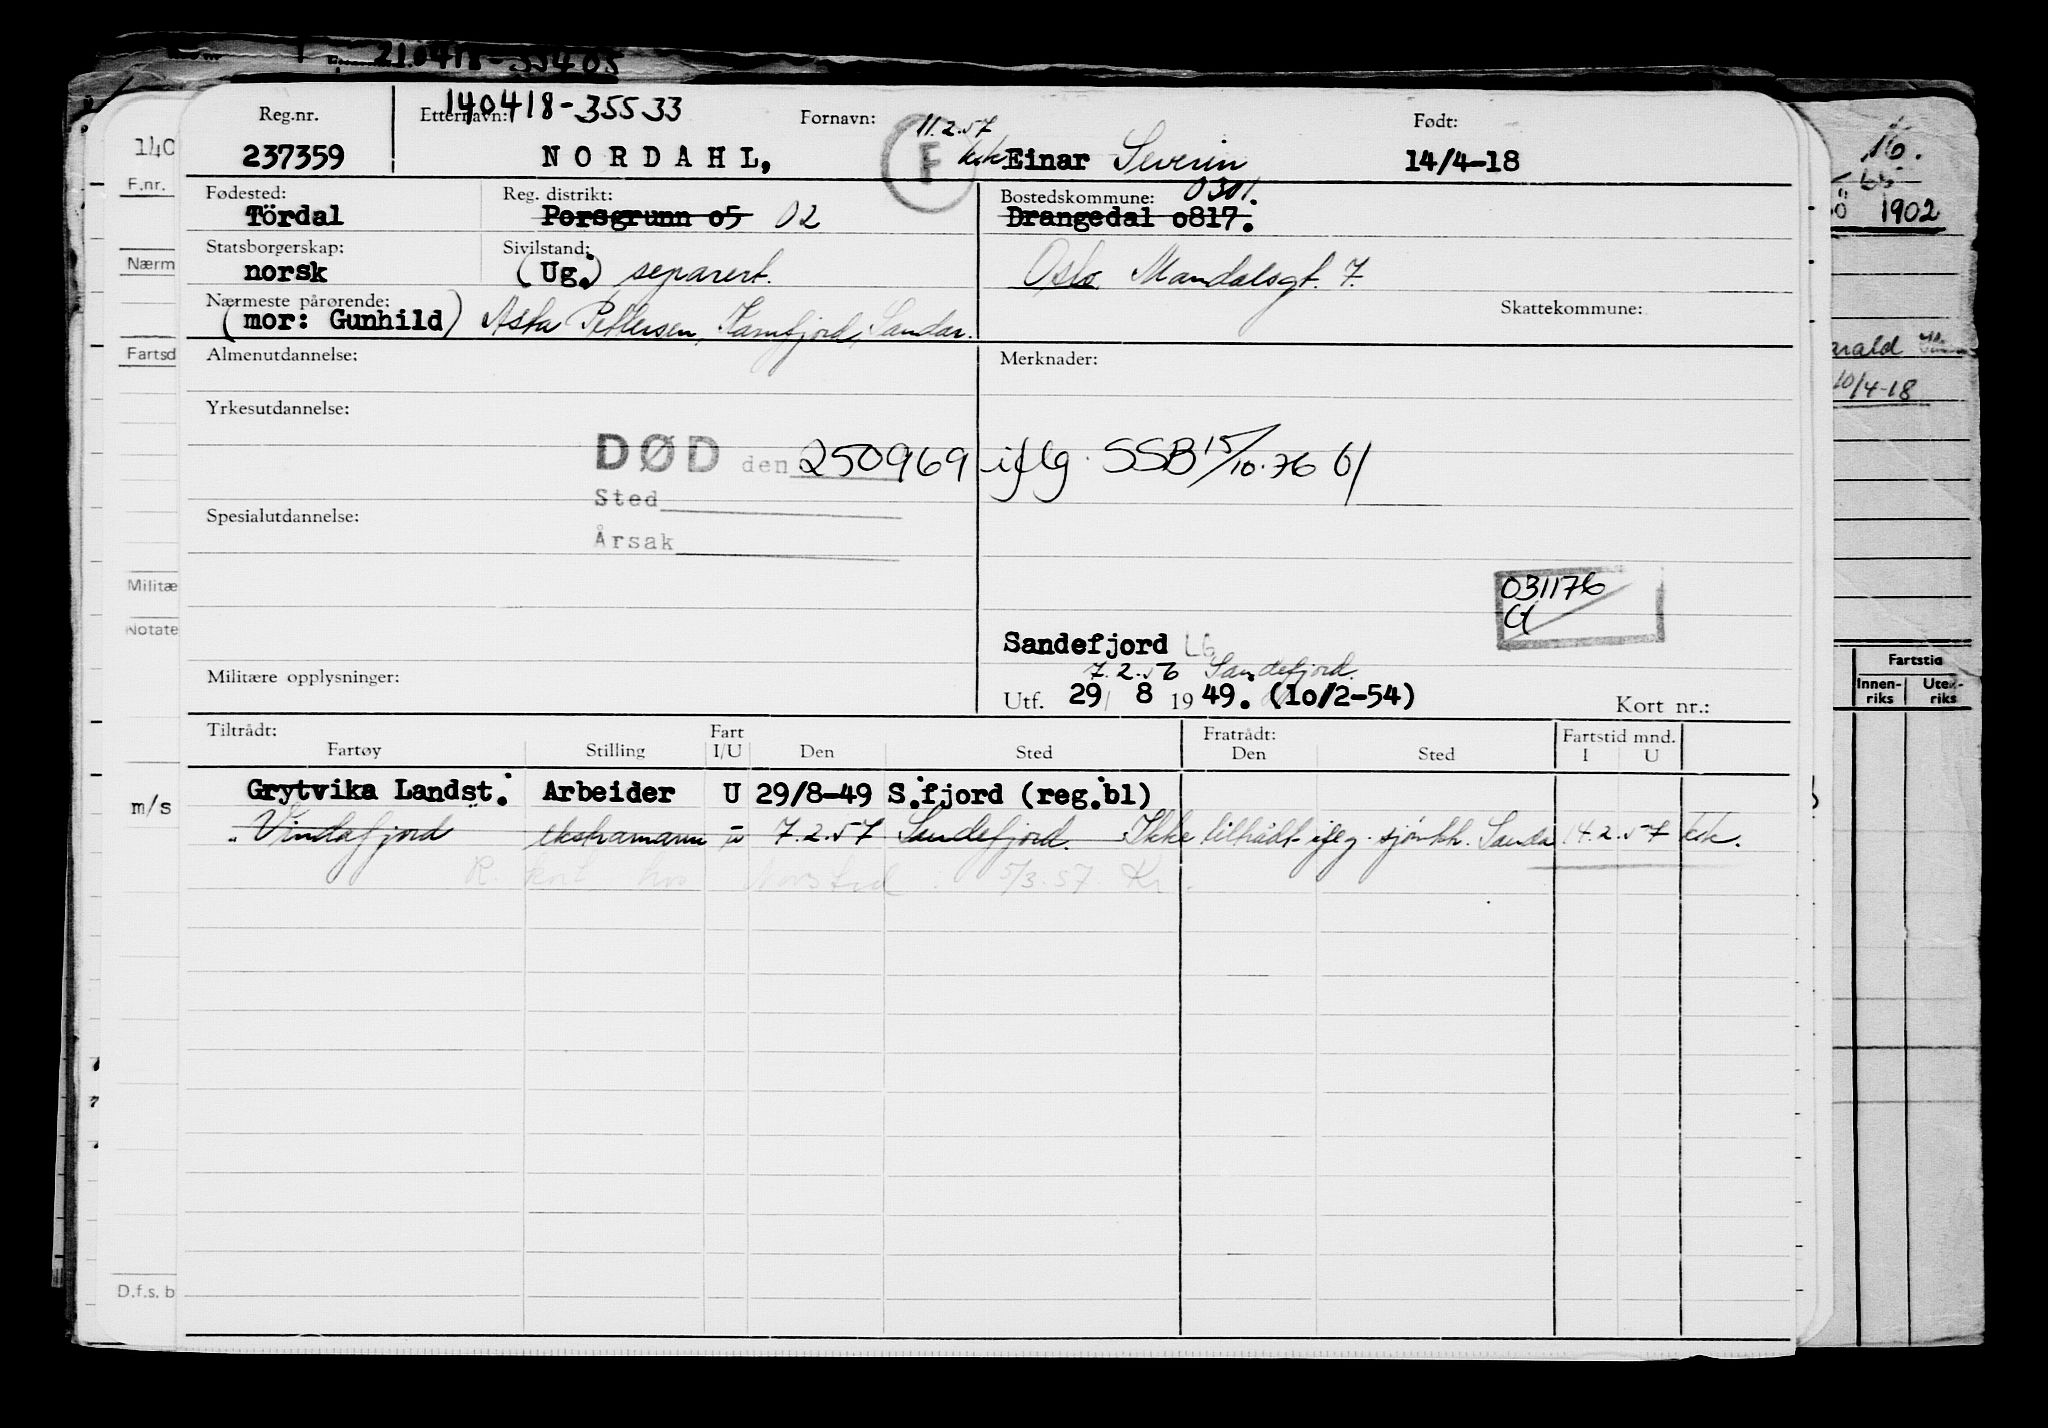 210418-33405
140418-35533
Reg.nr. Etternavn: Fornavn: 11.2.57 Født:
237359 NORDAHL, F ksk Einar Severin 14/4-18
Fødested: Reg. distrikt: Bostedskommune: 0301.
Tördal Porsgrunn o5 02 Drangedal o817.
Statsborgerskap: Sivilstand:
norsk (Ug.) separert. Oslo Mandalsgt. 7.
Nærmeste pårørende: Skattekommune:
(mor: Gunhild) Asta Pettersen, Kamfjord, Sandar.
Almenutdannelse: Merknader:
Yrkesutdannelse:
DØD den 250969 iflg. SSB 15/10.76
Sted
Spesialutdannelse:
Årsak
031176
Sandefjord
7.2.56 Sandefjord.
Militære opplysninger: Utf. 29/ 8 1949. (1o/2-54) Kort nr.:
Tiltrådt: Fart Fratrådt: Fartstid mnd.
Fartøy Stilling I/U Den Sted Den Sted I U
Grytvika Landst. Arbeider U 29/8-49 S.fjord (reg.bl)
" Vindafjord ekstramann u 7.2.57 Sandefjord. Ikke tiltrådt iflg. sjømkk. Sanda 14.2.57 ksk.
R. kort hos 5/3.57. Kr.
140
F.nr.
Nærm
Fartsd
Militæ
Notate
m/s
D.f.s. b
16.
1902
arald
10/4-18
Fartstid
Innen-riks Uten-riks